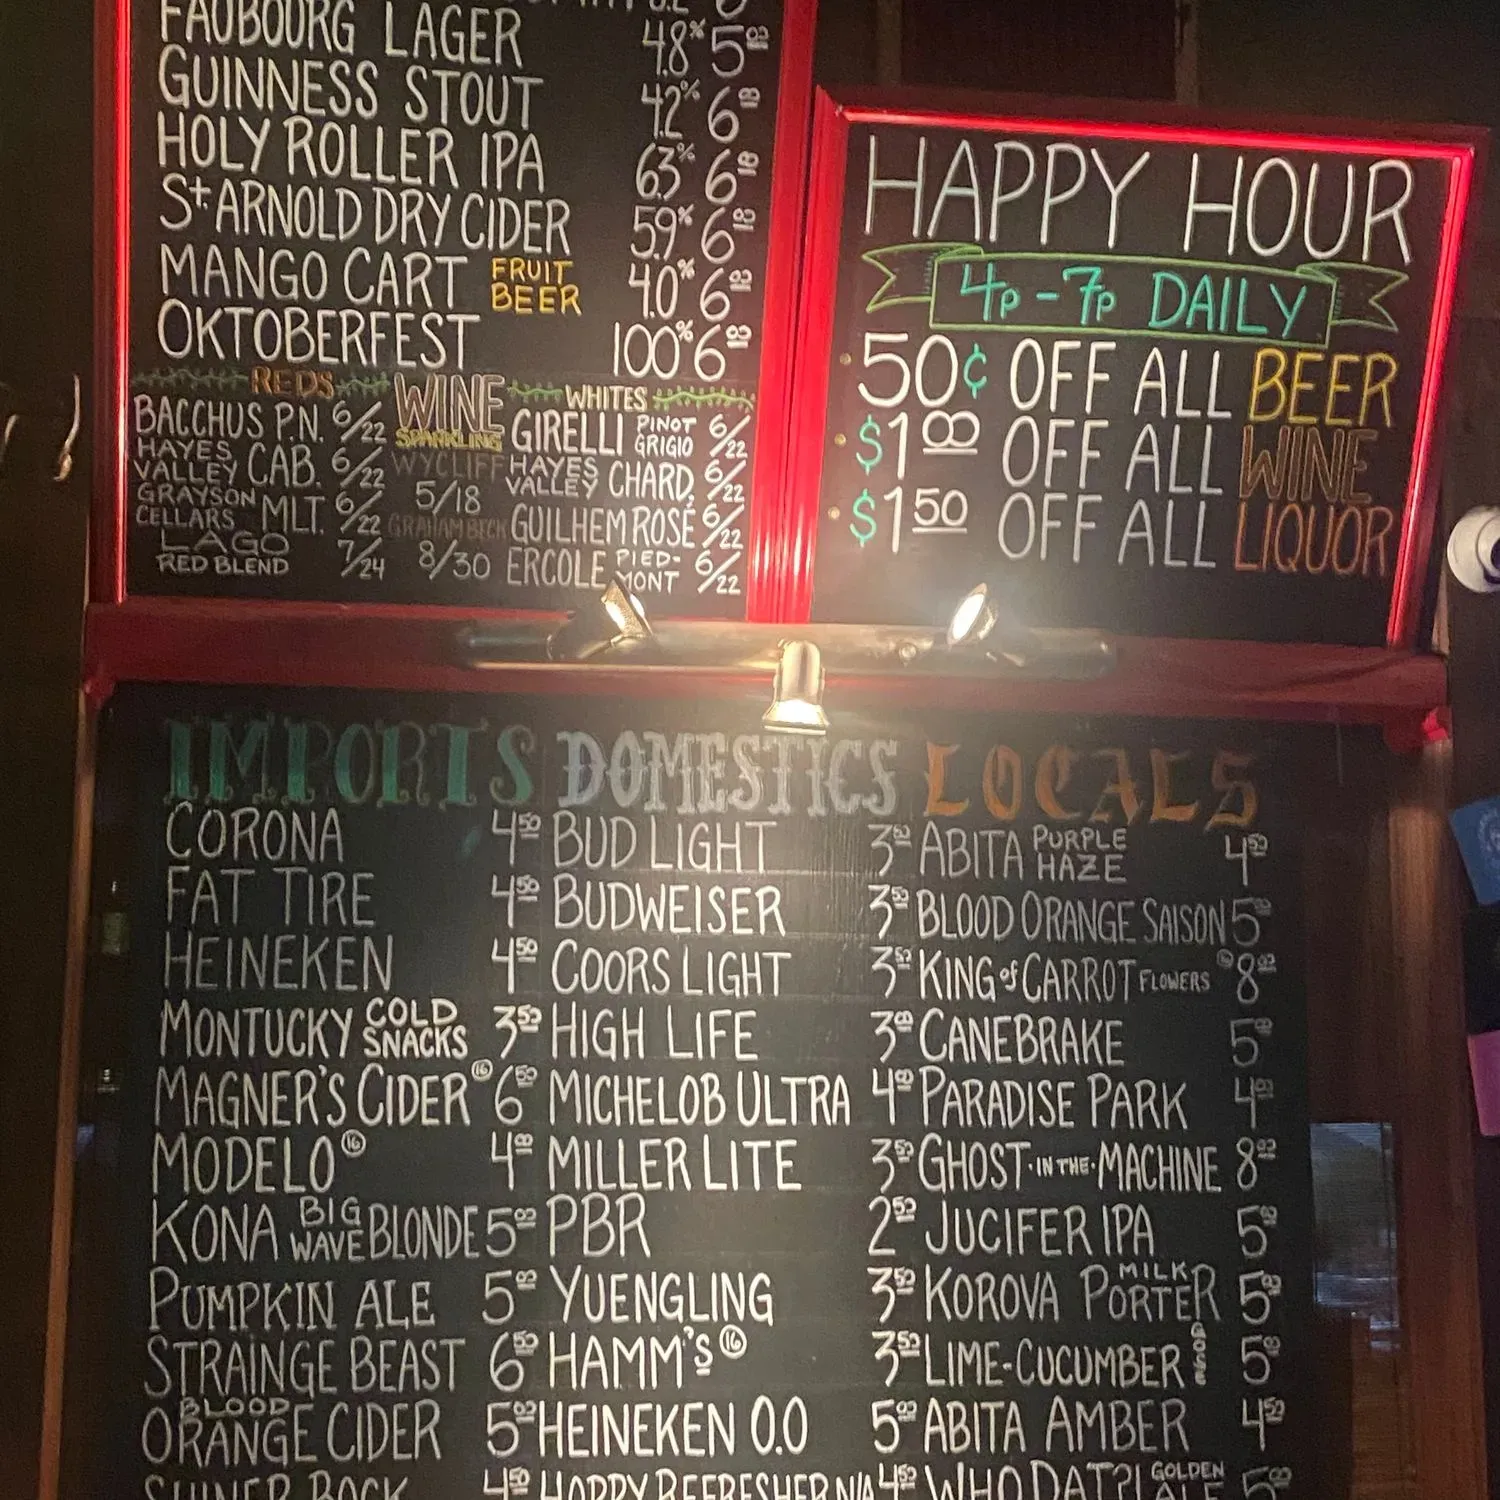 FAUBOURG LAGER 4.8% 5.00
GUINNESS STOUT 4.2% 6.00
HOLY ROLLER IPA 6.3% 6.00
St. ARNOLD DRY CIDER 5.9% 6.00
MANGO CART FRUIT BEER 4.0% 6.00
OKTOBERFEST 100% 6.00
REDS
BACCHUS P.N. 6/22
HAYES VALLEY CAB. 6/22
GRAYSON CELLARS MLT. 6/22
LAGO RED BLEND 7/24
WINE
SPARKLING
WYCLIFF
5/18
GRAHAM BECK
8/30
WHITES
GIRELLI PINOT GRIGIO 6/22
HAYES VALLEY CHARD. 6/22
GUILHEM ROSÉ 6/22
ERCOLE PIED-MONT 6/22
HAPPY HOUR
4p-7p DAILY
50¢ OFF ALL BEER
$1.00 OFF ALL WINE
$1.50 OFF ALL LIQUOR
IMPORTS
CORONA 4.50
FAT TIRE 4.50
HEINEKEN 4.50
MONTUCKY COLD SNACKS 3.50
MAGNER'S CIDER 16 6.50
MODELO 16 4.00
KONA BIG WAVE BLONDE 5.00
PUMPKIN ALE 5.00
STRAINGE BEAST 6.50
BLOOD ORANGE CIDER 5.00
SHINER BOCK 4.50
DOMESTICS
BUD LIGHT 3.50
BUDWEISER 3.50
COORS LIGHT 3.50
HIGH LIFE 3.00
MICHELOB ULTRA 4.00
MILLER LITE 3.50
PBR 2.50
YUENGLING 3.50
HAMM'S 16 3.50
HEINEKEN 0.0 5.00
HOPPY REFRESHER N/A 4.50
LOCALS
ABITA PURPLE HAZE 4.50
BLOOD ORANGE SAISON 5.00
KING of CARROT FLOWERS 16 8.00
CANEBRAKE 5.00
PARADISE PARK 4.00
GHOST·IN THE·MACHINE 8.00
JUCIFER IPA 5.00
KOROVA MILK PORTER 5.00
LIME-CUCUMBER GOSE 5.00
ABITA AMBER 4.50
WHO DAT?! GOLDEN ALE 5.00